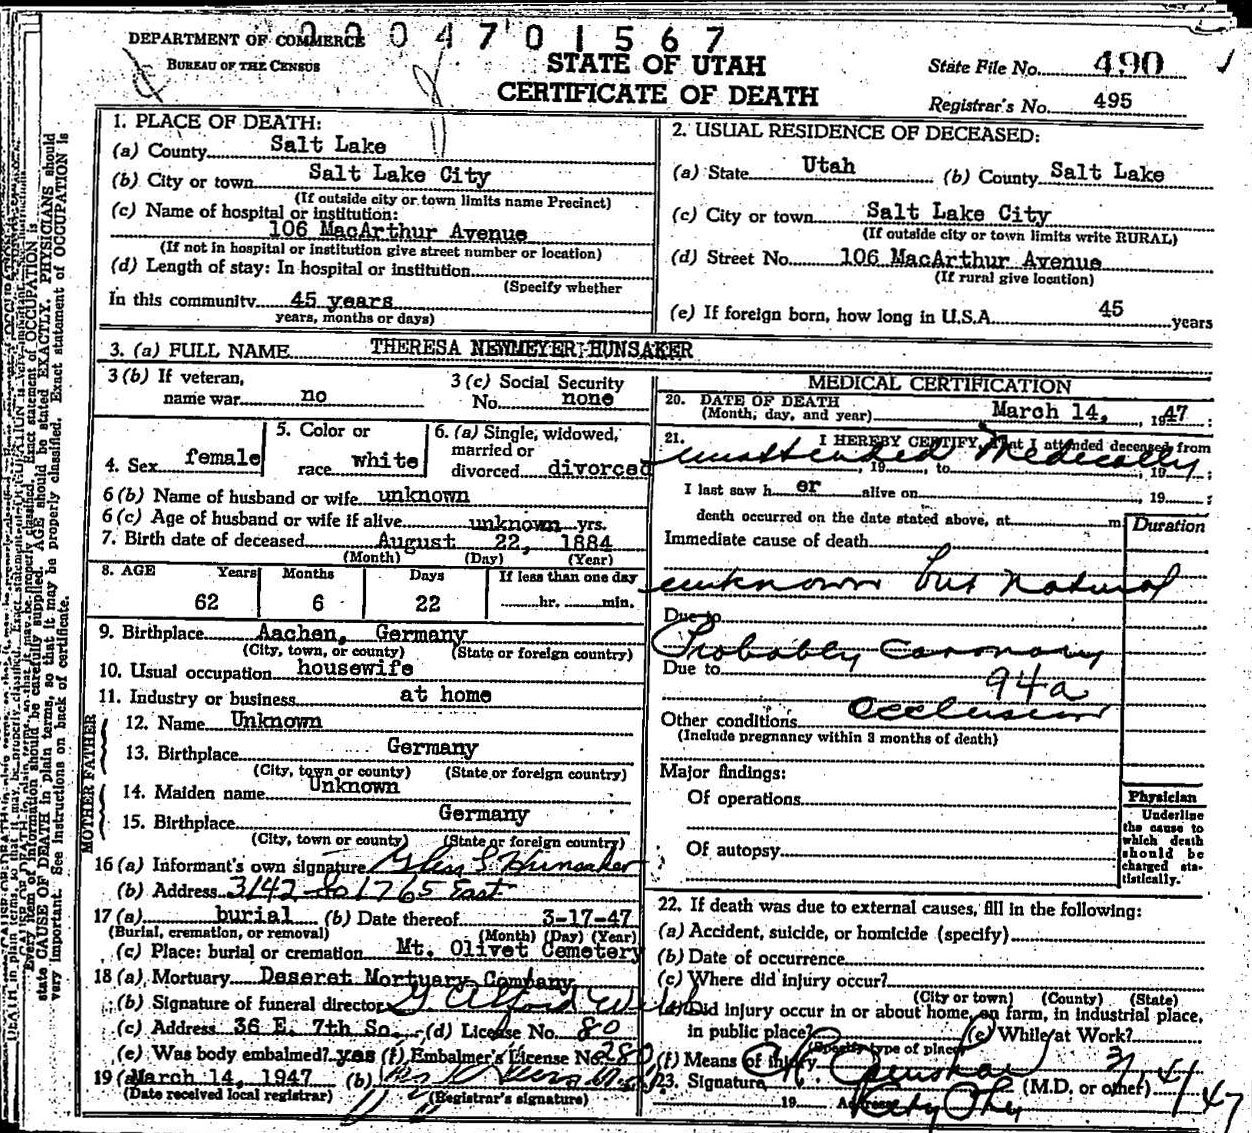 0004701567
DEPARTMENT OF COMMERCE
BUREAU OF THE CENSUS
STATE OF UTAH
CERTIFICATE OF DEATH
State File No. 490
Registrar's No. 495
1. PLACE OF DEATH:
(a) County Salt Lake
(b) City or town Salt Lake City
(If outside city or town limits name Precinct)
(c) Name of hospital or institution:
106 MacArthur Avenue
(If not in hospital or institution give street number or location)
(d) Length of stay: In hospital or institution
(Specify whether
In this community 45 years
years, months or days)
2. USUAL RESIDENCE OF DECEASED:
(a) State Utah (b) County Salt Lake
(c) City or town Salt Lake City
(If outside city or town limits write RURAL)
(d) Street No. 106 MacArthur Avenue
(If rural give location)
(e) If foreign born, how long in U.S.A. 45 years
3. (a) FULL NAME THERESA NEWMEYER HUNSAKER
3 (b) If veteran,
name war no
3 (c) Social Security
No. none
4. Sex female
5. Color or
race white
6. (a) Single, widowed,
married or
divorced divorced
6 (b) Name of husband or wife unknown
6 (c) Age of husband or wife if alive unknown yrs.
7. Birth date of deceased August 22, 1884
(Month) (Day) (Year)
8. AGE Years Months Days If less than one day
62 6 22 hr. min.
9. Birthplace Aachen, Germany
(City, town, or county) (State or foreign country)
10. Usual occupation housewife
11. Industry or business at home
FATHER
12. Name Unknown
13. Birthplace Germany
(City, town or county) (State or foreign country)
MOTHER
14. Maiden name Unknown
15. Birthplace Germany
(City, town, or county) (State or foreign country)
16 (a) Informant's own signature S. Hunsaker
(b) Address 3142 So 1765 East
17 (a) burial (b) Date thereof 3-17-47
(Burial, cremation, or removal) (Month) (Day) (Year)
(c) Place: burial or cremation Mt. Olivet Cemetery
18 (a) Mortuary Deseret Mortuary Company
(b) Signature of funeral director
(c) Address 36 E. 7th So. (d) License No. 80
(e) Was body embalmed? yes (f) Embalmer's License No. 280
19 (a) March 14, 1947 (b)
(Date received local registrar) (Registrar's signature)
MEDICAL CERTIFICATION
20. DATE OF DEATH
(Month, day, and year) March 14, 1947
21. I HEREBY CERTIFY, That I attended deceased from
unattended Medically
, 19 , to , 19 ;
I last saw h er alive on , 19 ;
death occurred on the date stated above, at m.
Duration
Immediate cause of death
unknown but natural
Due to
Probably Coronary
Due to 94a
occlusion
Other conditions
(Include pregnancy within 3 months of death)
Major findings:
Of operations
Of autopsy
Physician
Underline
the cause to
which death
should be
charged sta-
tistically.
22. If death was due to external causes, fill in the following:
(a) Accident, suicide, or homicide (specify)
(b) Date of occurrence
(c) Where did injury occur?
(City or town) (County) (State)
(d) Did injury occur in or about home, on farm, in industrial place,
in public place? (e) While at Work?
(Specify type of place)
(f) Means of injury
23. Signature (M.D. or other)
19 Address
state CAUSE OF DEATH in plain terms, so that it may be properly classified. Exact statement of OCCUPATION is
very important. See instructions on back of certificate.